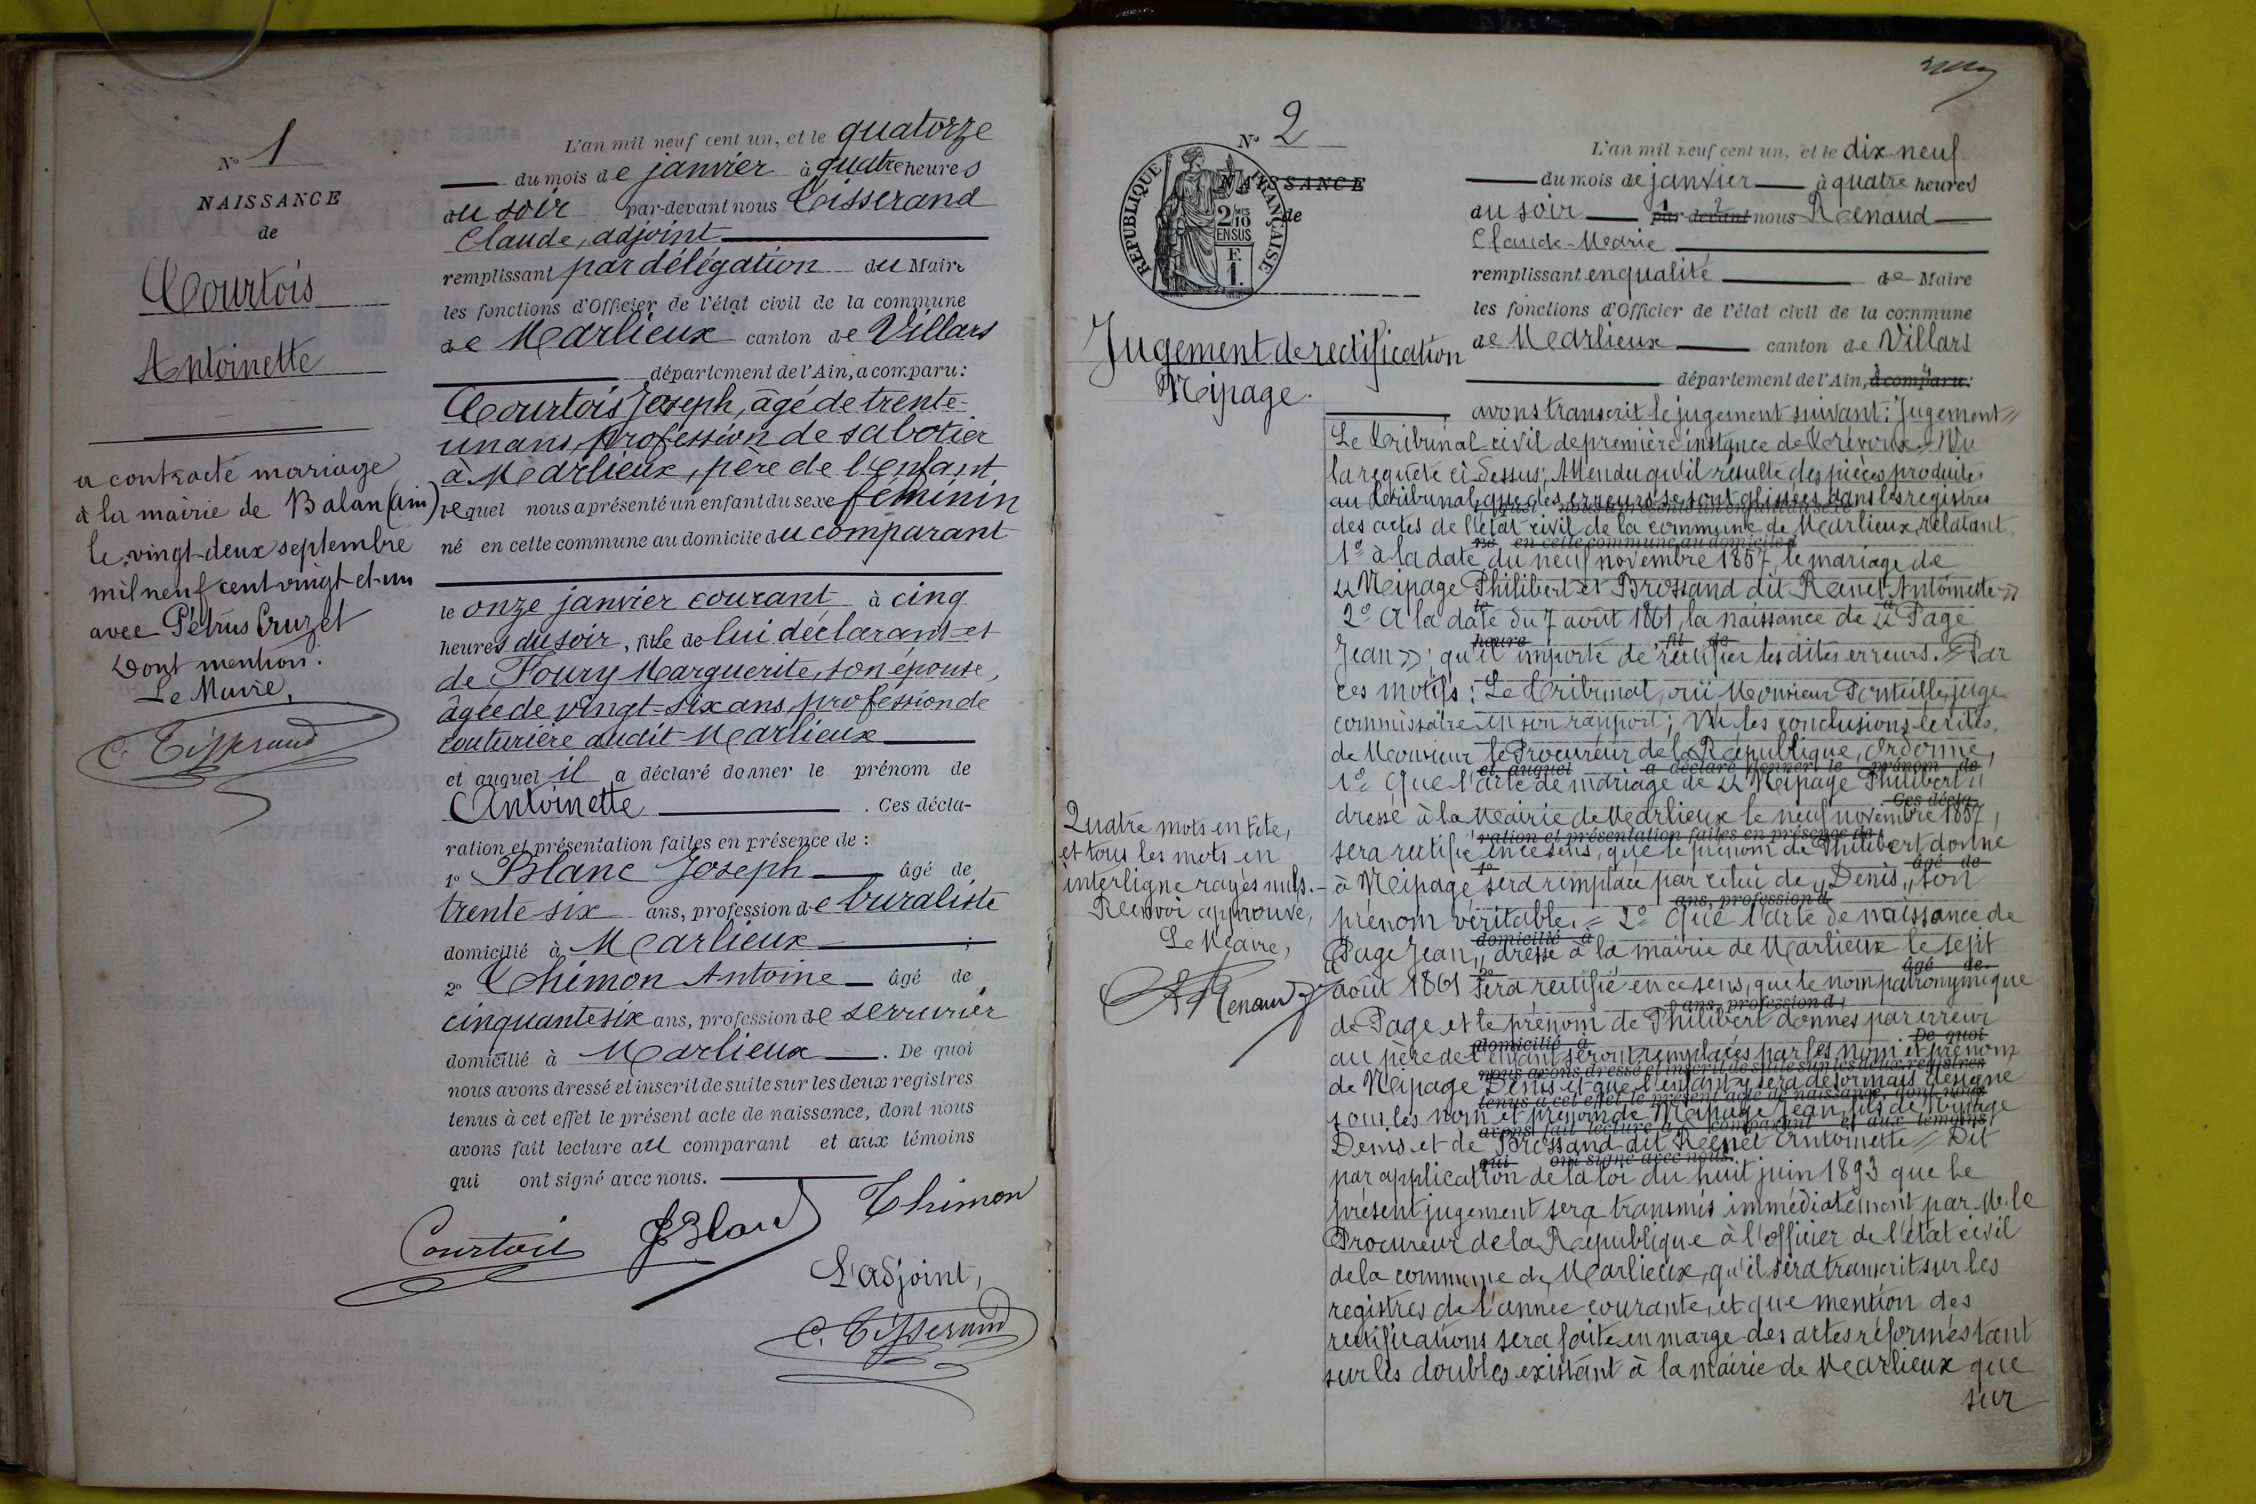 N° 1
NAISSANCE
de
Courtois
Antoinette
a contracté mariage
à la mairie de Balan (Ain)
le vingt-deux septembre
mil neuf cent vingt-et-un
avec Pétrus Cruzet
Dont mention.
Le Maire,
C. Tisserand
L'an mil neuf cent un, et le quatorze
du mois de janvier à quatre heures
du soir par-devant nous Tisserand
Claude, adjoint
remplissant par délégation du Maire
les fonctions d'Officier de l'état civil de la commune
de Marlieux canton de Villars
département de l'Ain, a comparu:
Courtois Joseph, âgé de trente-
un ans, profession de sabotier
à Marlieux, père de l'enfant,
lequel nous a présenté un enfant du sexe féminin
né en cette commune au domicile du comparant
le onze janvier courant à cinq
heures du soir, fille de lui déclarant et
de Foury Marguerite, son épouse,
âgée de vingt-six ans, profession de
couturière audit Marlieux
et auquel il a déclaré donner le prénom de
Antoinette. Ces décla-
ration et présentation faites en présence de :
1° Blanc Joseph âgé de
trente six ans, profession de buraliste
domicilié à Marlieux ;
2° Thimon Antoine âgé de
cinquante six ans, profession de serrurier
domicilié à Marlieux. De quoi
nous avons dressé et inscrit de suite sur les deux registres
tenus à cet effet le présent acte de naissance, dont nous
avons fait lecture au comparant et aux témoins
qui ont signé avec nous.
Courtois JBlanc Thimon
L'adjoint,
C. Tisserand
N° 2
NAISSANCE
de
REPUBLIQUE FRANÇAISE
2/10 EN SUS
F. 1.
Jugement de rectification
Mipage.
Quatre mots en tête,
et tous les mots en
interligne rayés nuls.
Renvoi approuvé,
Le Maire,
Renaud
L'an mil neuf cent un, et le dix-neuf
du mois de janvier à quatre heures
du soir par-devant nous Renaud
Claude-Marie
remplissant en qualité de Maire
les fonctions d'Officier de l'état civil de la commune
de Marlieux canton de Villars
département de l'Ain, a comparu:
avons transcrit le jugement suivant: Jugement
Le Tribunal civil de première instance de Trévoux. Vu
la requête ci-dessus; Attendu qu'il résulte des pièces produites
au tribunal, que des erreurs se sont glissées dans les registres
des actes de l'état-civil de la commune de Marlieux, relatant
né en cette commune au domicile d
1° à la date du neuf novembre 1857, le mariage de
"Mipage Philibert et Brossand dit Renet Antoinette"
2° A la date du 7 août 1861, la naissance de "Page
heure fil de
Jean"; qu'il importe de rectifier les dites erreurs. Par
ces motifs: Le Tribunal, ouï Monsieur juge
commissaire en son rapport; Vu les conclusions écrites
de Monsieur le Procureur de la République, Ordonne,
et auquel a déclaré donner le prénom de
1° Que l'acte de mariage de "Mipage Philibert"
Ces décla-
dressé à la Mairie de Marlieux le neuf novembre 1857,
ration et présentation faites en présence de:
sera rectifié en ce sens, que le prénom de Philibert donné
1° âgé de
à Mipage sera remplacé par celui de "Denis" son
ans, profession d
prénom véritable. = 2° Que l'acte de naissance de
domicilié à
"Page Jean" dressé à la mairie de Marlieux le sept
2° âgé de
août 1861 sera rectifié en ce sens, que le nom patronymique
ans, profession d
de Page et le prénom de Philibert donnés par erreur
domicilié à De quoi
au père de l'enfant seront remplacés par les nom et prénom
nous avons dressé et inscrit de suite sur les deux registres
de Mipage Denis et que l'enfant y sera désormais désigné
tenus à cet effet le présent acte de naissance, dont nous
sous les nom et prénom de Mipage Jean, fils de Mipage
avons fait lecture a comparant et aux témoins
Denis et de Brossand dit Renet Antoinette = Dit
qui ont signé avec nous.
par application de la loi du huit juin 1893 que le
présent jugement sera transmis immédiatement par M. le
Procureur de la République à l'officier de l'état civil
de la commune de Marlieux, qu'il sera transcrit sur les
registres de l'année courante, et que mention des
rectifications sera faite en marge des actes réformés tant
sur les doubles existant à la mairie de Marlieux que
sur